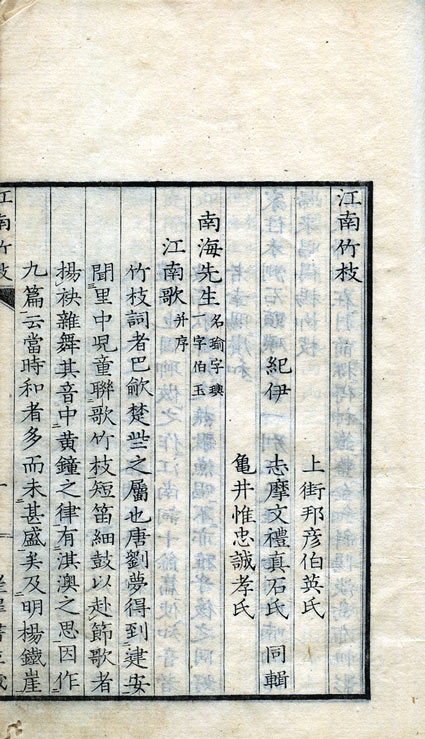 江南竹枝
上街邦彦伯英氏
紀伊 志摩文禮真石氏 同輯
亀井惟忠誠孝氏
南海先生 名瑜字
一字伯玉
江南歌 并序
竹枝詞者巴歈楚些之屬也唐劉夢得到建安
聞里中児童聯歌竹枝短笛細鼓以赴節歌者
揚袂雜舞其音中黄鐘之律有淇澳之思因作
九篇云當時和者多而未甚盛矣及明楊鐵崖
江南竹枝
一